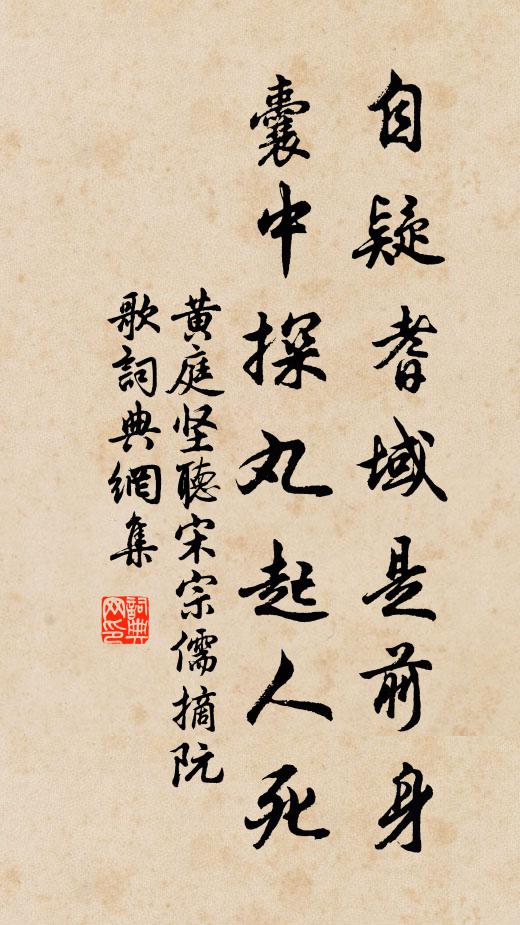 自疑耆域是前身
囊中探丸起人死
黄庭坚聽宋宗儒摘阮
歌詞典網集
詞典网印